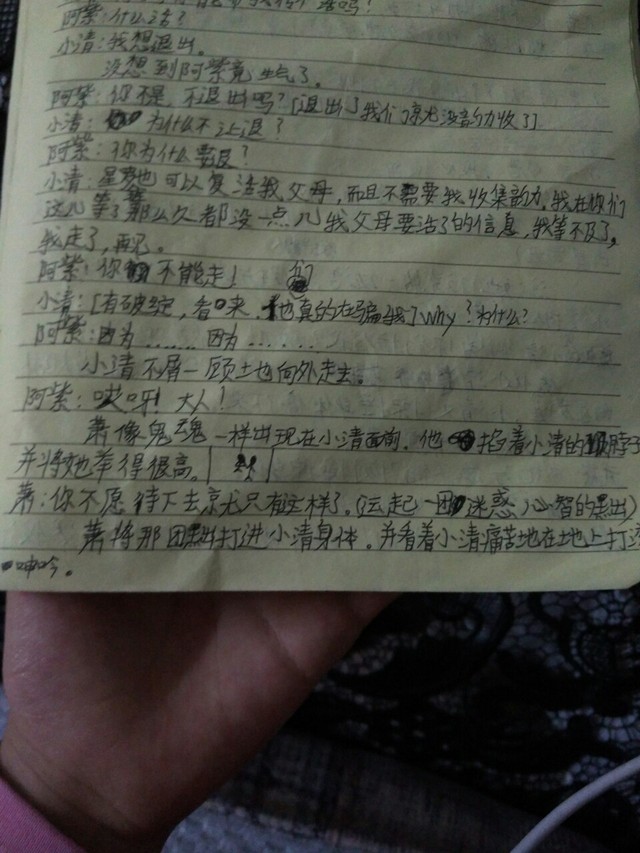 阿紫：什么话？
小清：我想退出。
没想到阿紫竟生气了。
阿紫：你是不退出吗？[退出了我们就没韵力收了]
小清：为什么不让退？
阿紫：你为什么要退？
小清：星也可以复活我父母，而且不需要我收集韵力，我在你们
这儿等了那么久都没一点儿我父母要活了的信息，我等不及了，
我走了，再见。
阿紫：你不能走！
小清：[有破绽，看来，他们真的在骗我] why？为什么？
阿紫：因为……因为……
小清不屑一顾土也向外走去。
阿紫：哎呀！大人！
萧像鬼魂一样出现在小清面前。他掐着小清的脖子
并将她举得很高。
萧：你不愿待下去就只有这样了。(运起一团迷惑心智的黑)
萧将那团打进小清身体。并看着小清痛苦地在地上打
呻吟。